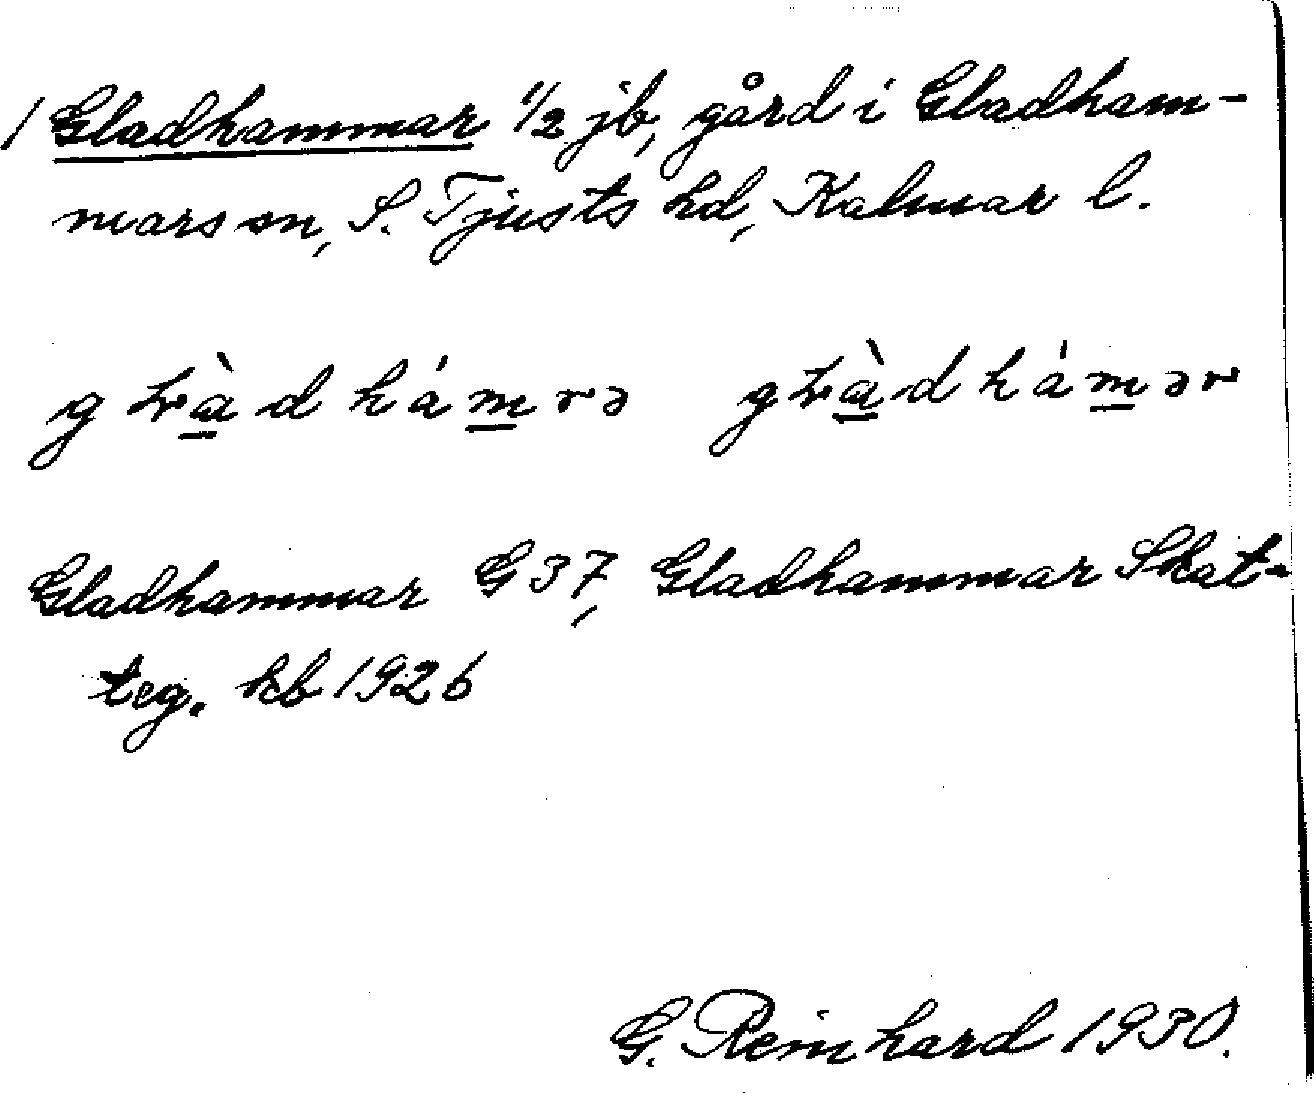 / Gladhammar 1/2 jb, gård i Gladham-
mars sn, S. Tjusts hd, Kalmar l.
gɫàdhámrə gɫàdhámər
Gladhammar G 37, Gladhammar Skat-
teg. kb 1926
G. Reinhard 1930.